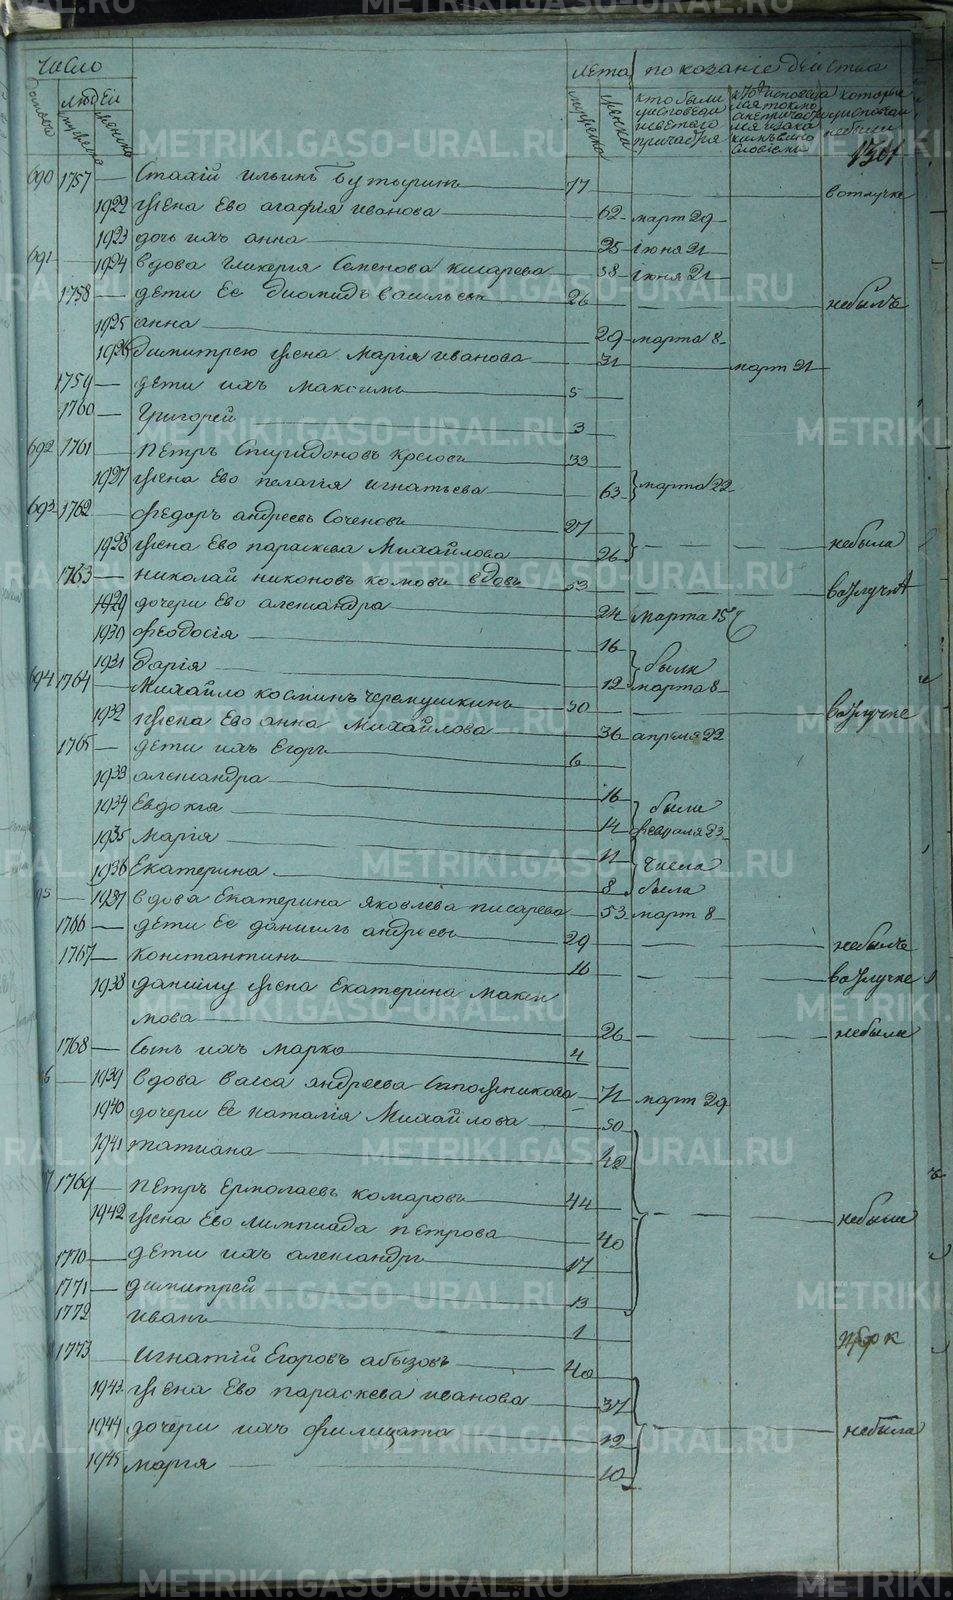 METRIKI.GASO-URAL.RU
число лета показаніе действа
домовъ людей мужеска женска мужеска женска кто были у исповеди и святаго причастія которые у исповеди не были
1301
690 1757 — Стахій Ильинъ Бутыринъ 77 вотлучке
1922 жена Ево агафія иванова 62 март 29
1923 дочь ихъ анна 25 іюня 21
691 1924 вдова гликерія Семенова писарева 58 іюня 21
1758 — дети Ее диомидъ васильевъ 26 небылъ
1925 анна 29 марта 8
1926 димитрею жена Марія иванова 31 март 21
1759 — дети ихъ максимъ 5
1760 — григорей 3
692 1761 — Петръ Спиридоновъ 33
1927 жена Ево пелагія игнатьева 63 марта 22
693 1762 — федоръ андреевъ Соченовъ 27
1928 жена Ево параскева Михайлова 26 небыла
1763 — николай никоновъ вдовъ 53
1929 дочери Ево александра 24 марта 15
1930 феодосія 16
1931 дарія 12 были марта 8
694 1764 — Михайло косминъ черемушкинъ 50 вотлучке
1932 жена Ево анна Михайлова 36 апреля 22
1765 — дети ихъ Егоръ 6
1933 александра 16
1934 Евдокія 14 были февраля 23
1935 марія 11 числа
1936 Екатерина 8 была
1937 вдова Екатерина яковлева писарева 53 март 8
1766 — дети Ее даниилъ андреевъ 29 небылъ
1767 — константинъ 16 вотлучке
1938 даниилу жена Екатерина макси
мова 26 небыла
1768 — сынъ ихъ марко 4
1939 вдова васса андреева Сапожникова 71 март 29
1940 дочери Ее наталія Михайлова 50
1941 татиана 42
1769 — Петръ Ермолаевъ комаровъ 44
1942 жена Ево лимпиада петрова 40 небыли
1770 — дети ихъ александръ 17
1771 — димитрей 13
1772 иванъ 1
1773 игнатій Егоровъ абызовъ 40
1943 жена Ево параскева иванова 37
1944 дочери ихъ филицата 12 небыла
1945 марія 10